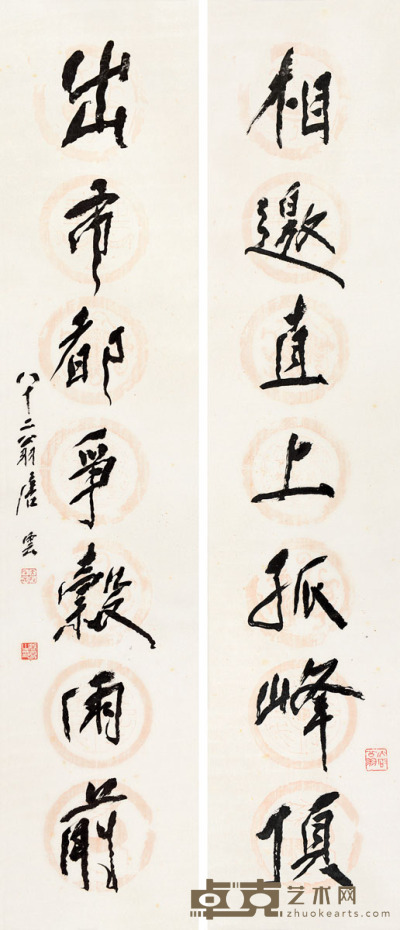 相邀直上孤峰顶
出市都争穀雨前
八十二翁唐雲
卓克艺术网
zhuokearts.com